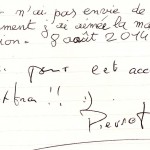 n'ai pas envie de
ment j'ai aimée la ma
ion. 8 août 2014
pour cet acc
xtra !! :)
Pierrot